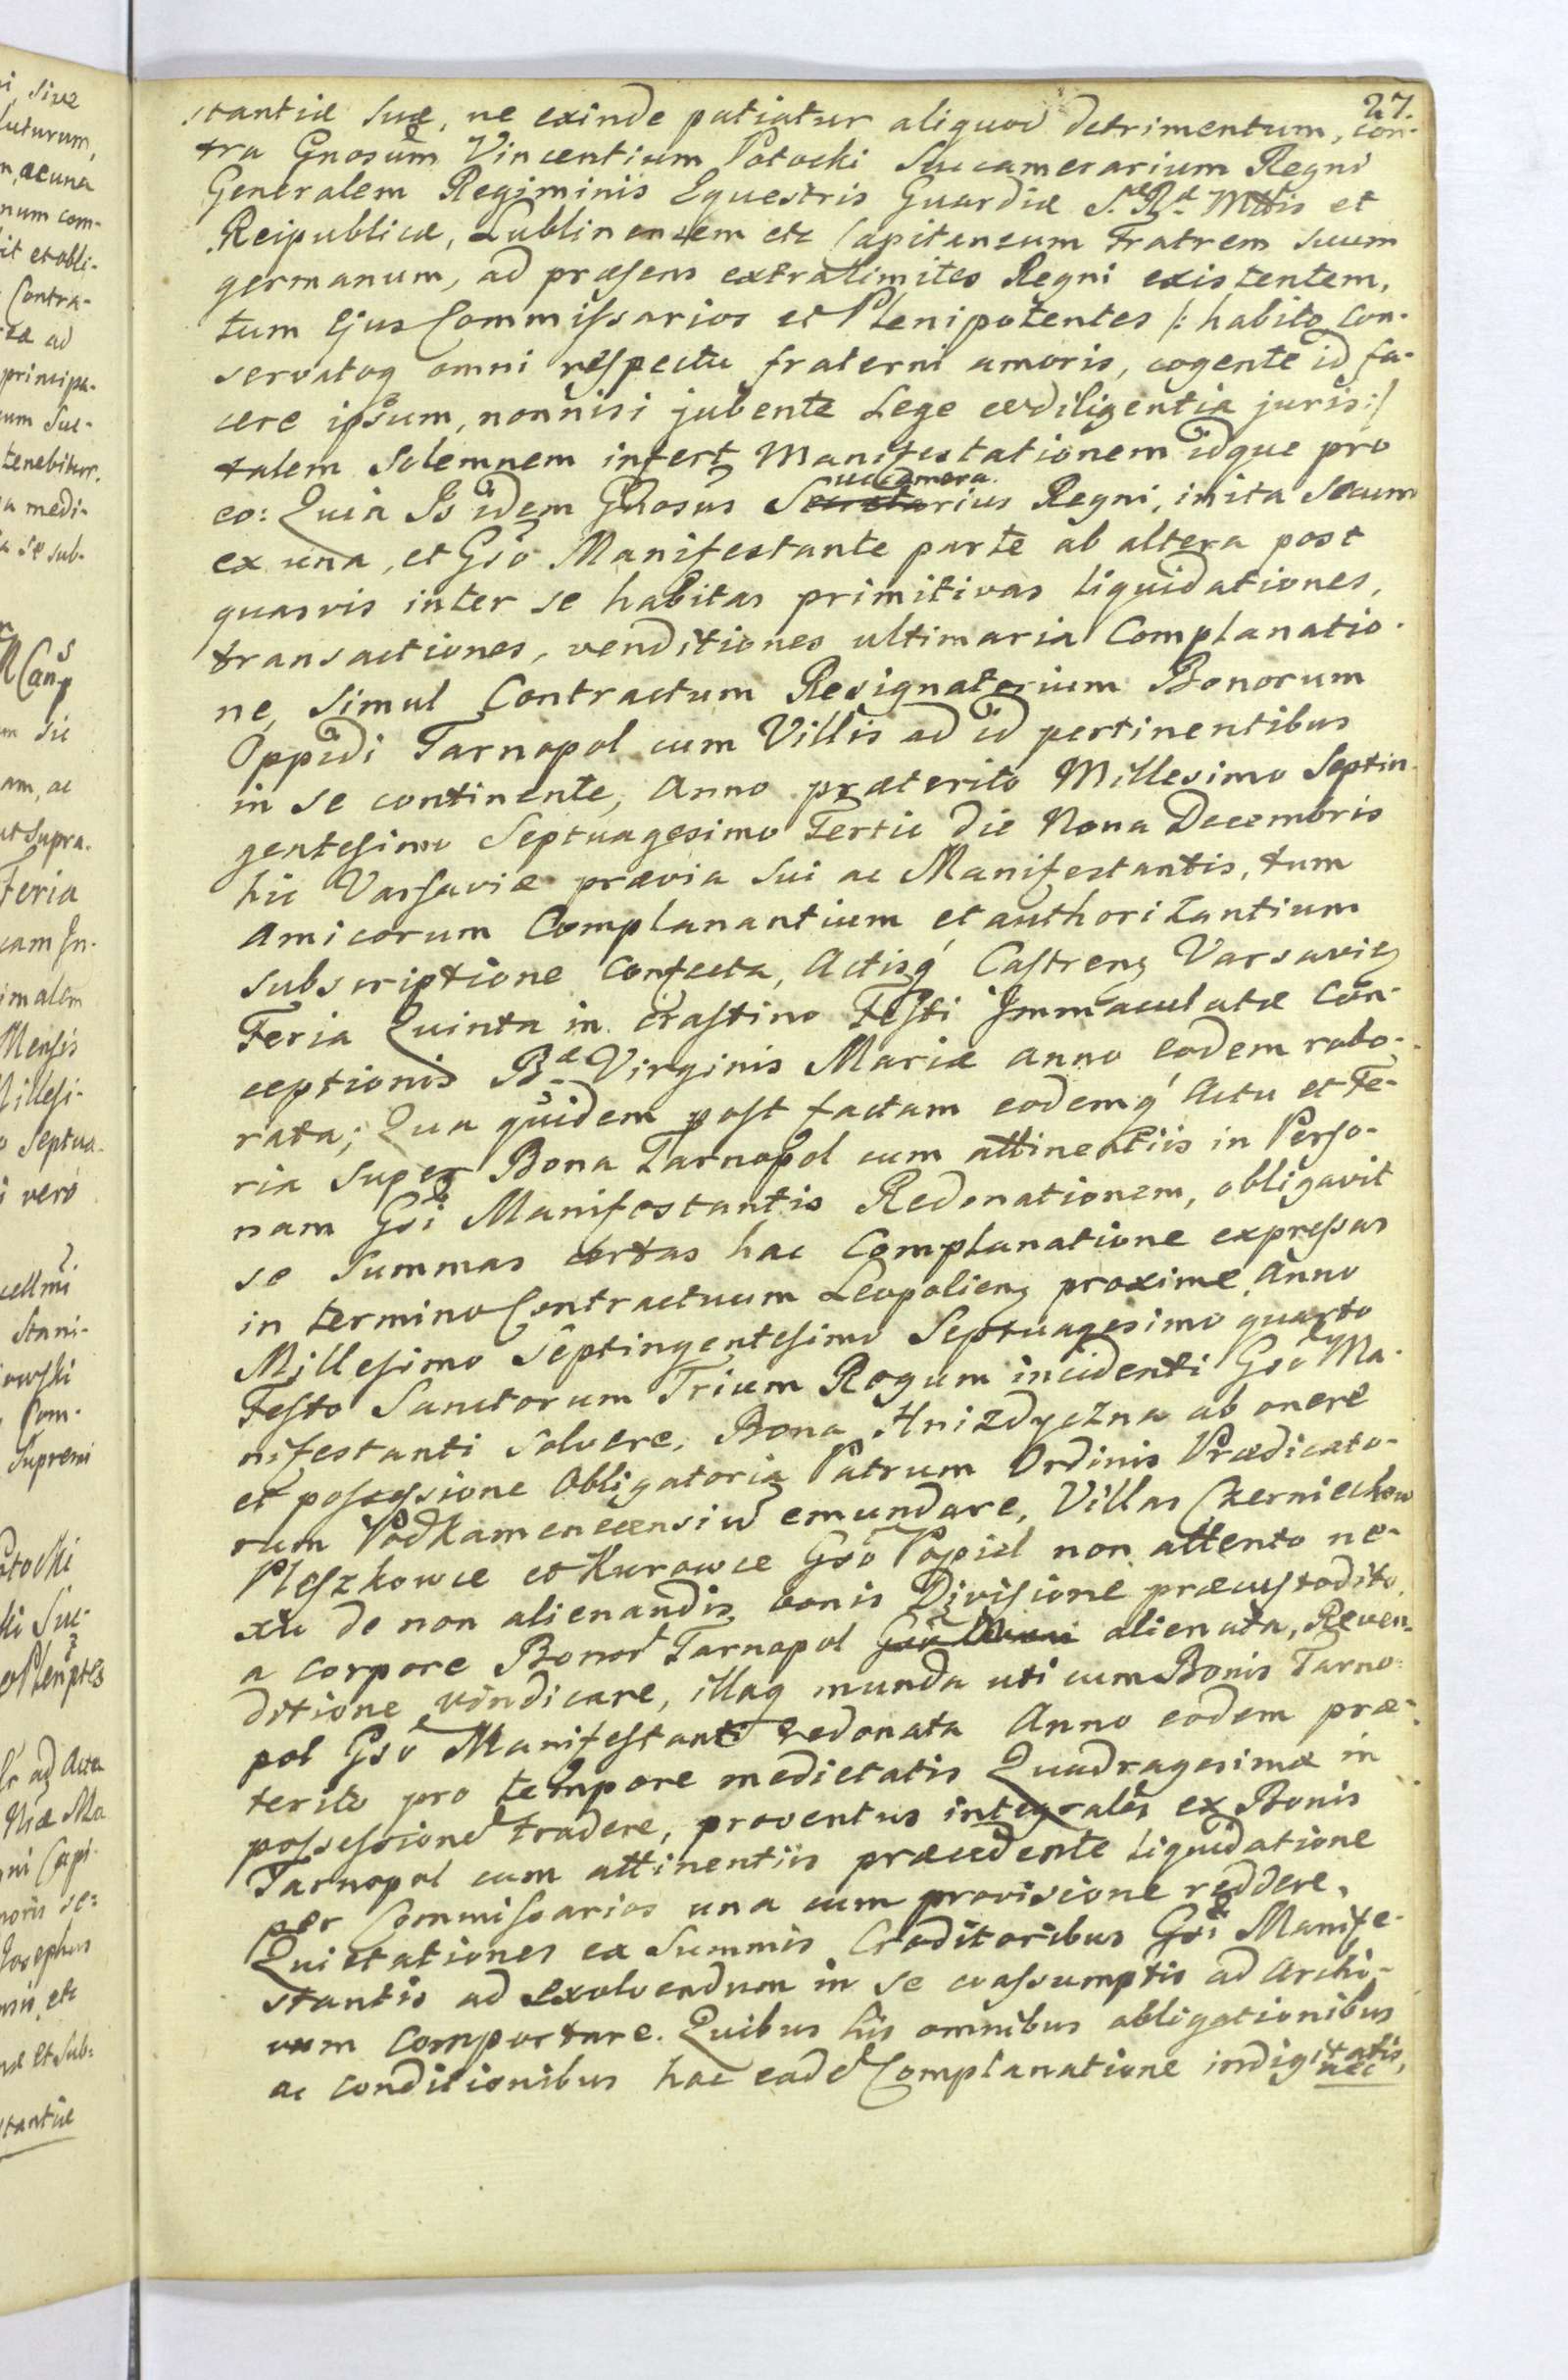 27.
stantiæ suæ, ne exinde patiatur aliquod detrimentum, con-
tra Gnosum Vincentium Potocki Succamerarium Regni
Generalem Regiminis Equestris Guardiæ S. Ræ Mttis et
Reipublicæ, Lublinensem etc Capitaneum Fratrem suum
germanum, ad præsens extra limites Regni existentem,
tum Ejus Commissarios et Plenipotentes /: habito con-
servatoq omni respectu fraterni amoris, cogente id fa-
cere ipsum, nonnisi jubente Lege ac diligentia juris :/
talem solemnem infert Manifestationem idque pro
eo: Quia Is idem Gnosus Succamerarius Regni, inita secum
ex una, et Gso Manifestante parte ab altera post
quasvis inter se habitas primitivas liquidationes,
transactiones, venditiones ultimaria Complanatio-
ne, simul Contractum Resignatorium Bonorum
Oppidi Tarnopol cum Villis ad id pertinentibus
in se continente, Anno præterito Millesimo Septin-
gentesimo Septuagesimo Tertio die Nona Decembris
hic Varsaviæ prævia sui ac Manifestantis, tum
Amicorum Complanantium et authorizantium
subscriptione confecta, Actisq Castren Varsavien
Feria Quinta in crastino Festi Immaculatæ Con-
ceptionis Bæ Virginis Mariæ anno eodem robo-
rata; Qua quidem post factam eodemq Actu et Fe-
ria super Bona Tarnopol cum attinentiis in Perso-
nam Gsi Manifestantis Redonationem, obligavit
se Summas certas hac Complanatione expressas
in termino Contractuum Leopolien proxime Anno
Millesimo Septingentesimo Septuagesimo quarto
Festo Sanctorum Trium Regum incidenti Gso Ma-
nifestanti solvere, Bona Hnizdyczna ab onere
et possessione Obligatoria Patrum Ordinis Prædicato-
rum Podkamenecensiu emundare, Villas Czerniechow
Pleszkowce et Kurowce Gso Popiel non attento ne-
xu de non alienandis bonis Divisione præcustodito
a corpore Bonor Tarnopol alienata, Reven-
ditione vindicare, illaq munda uti cum Bonis Tarno-
pol Gso Manifestanti redonata Anno eodem præ-
terito pro tempore medietatis Quadragesimæ in
possessione tradere, proventus integrales ex Bonis
Tarnopol cum attinentiis præcedente liquidatione
per Commissarios una cum provisione reddere,
Quietationes ex Summis Creditoribus Gsi Manife-
stantis ad exolvendum in se coassumptis ad Archi-
vum comportare. Quibus his omnibus obligationibus
ac conditionibus hac eade Complanatione indigitatis,
nec